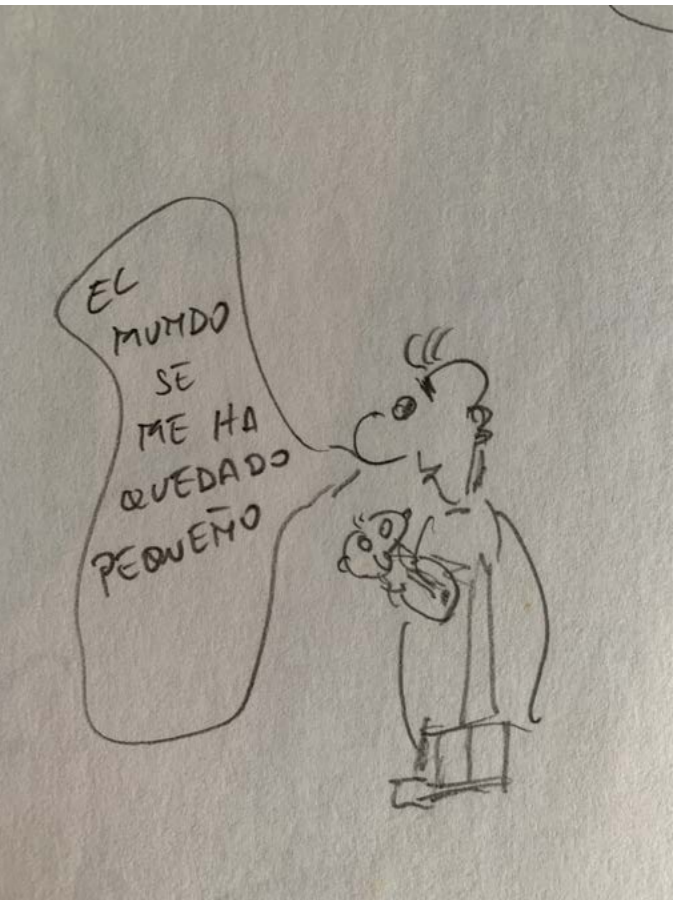 EL
MUNDO
SE
ME HA
QUEDADO
PEQUEÑO